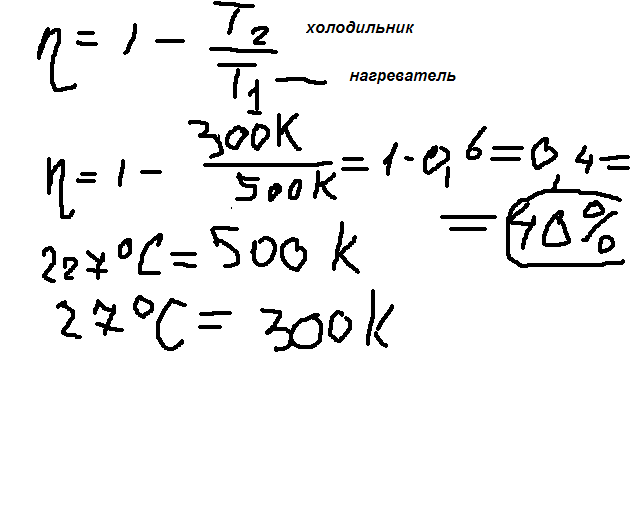 η = 1 - T2/T1 холодильник
нагреватель
η = 1 - 300K/500K = 1 - 0,6 = 0,4 =
= 40%
227°C = 500 K
27°C = 300K